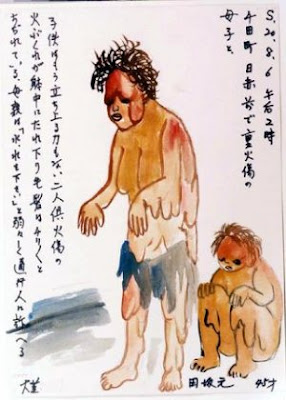 S.20.8.6 午后2時
千田町 日赤前で重火傷の
母子と、
子供はもう立ち上る力もない 二人供火傷の
火ぶくれが体中にたれ下り毛髪はチリ〱と
ちぢれている、母親は「水を下さい」と弱々しく通行人に訴へる
45才